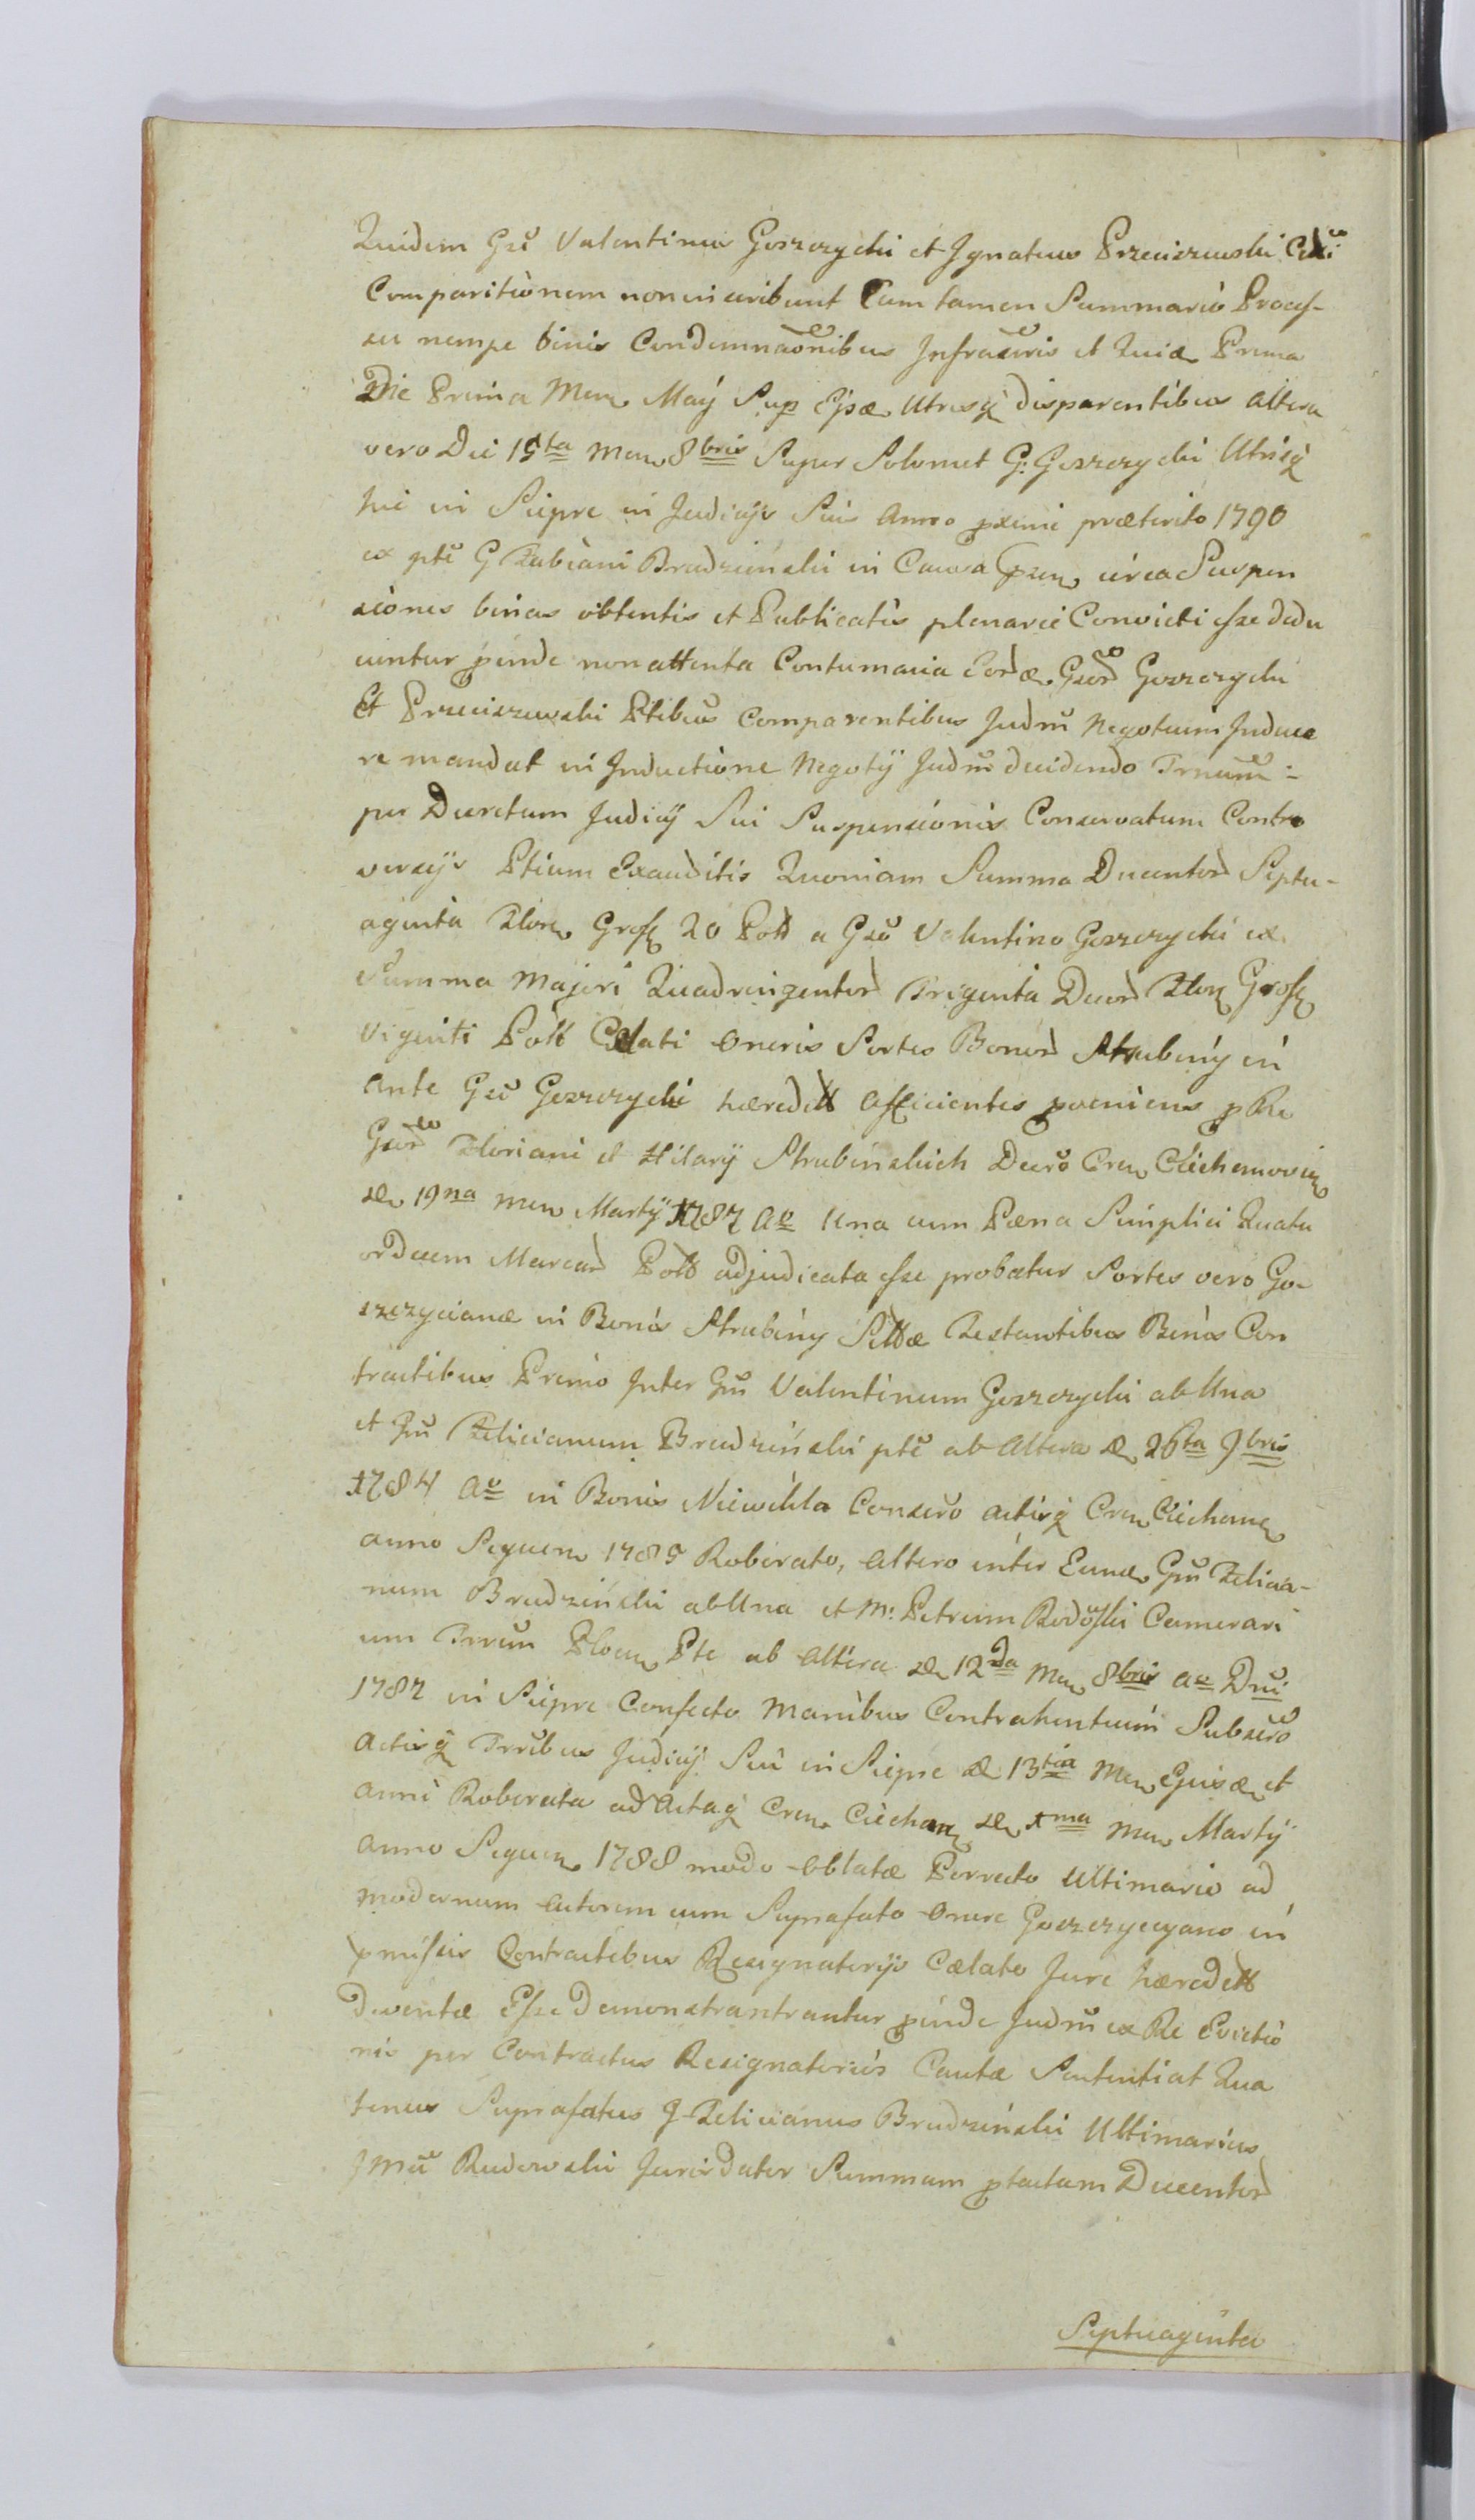 Quidem Gsi Valentinus Goszczycki et Ignatius Przeciszewski
Comparitionem non inscribunt Cum tamen Summario Proces-
su nempe binis Condemnaonibus Infrascris et Quidem Prima
Die Prima Men Maÿ Sup Ejsdem Utrisq disparentibus altera
vero Die 15ta Men 8bris Super Solomet G: Goszczycki Utrisq
hic in Sieprc in Judicÿs Suis Anno pximi præterito 1790
ex pte G Fabiani Brudzinski in Causa pzen circa Suspen
siones binas obtentis et Publicatis plenarie Convicti esse dedu
cuntur pinde non attenta Contumacia eord Gsord Goszczycki
Et Przeciszewski Ptibus Comparentibus Judm Negotium Induce
re mandat in Inductione Negotÿ Judm decidendo Trnum -
per Decretum Judicÿ Sui Suspensionis Conservatum Contro
versÿs Ptium Exauditis Quoniam Summa Ducentord Septu-
aginta Flor Gross 20 Poll a Gso Valentino Goszczycki ex
Summa Majori Quadringentord Triginta Duord Flor Gross
Viginti Poll Celati Oneris Sortes Bonord Strubiny in
ante Gsi Goszczycki hæredit afficientes pveniens p Re
Gsord Floriani et Hilarÿ Strubinskich Decro Cren Ciechanovien
de 19na Men Martÿ 1787 Ao Una cum Pæna Simplici Quatu
ordecem Marcard Poll adjudicata esse probatur Sortes vero Go-
szczycianæ in Bonis Strubiny Sittæ Testantibus Binis Con
tractibus Primo Inter Gsu Valentinum Goszczycki ab Una
et Gsu Felicianum Brudzinski pte ab Altera de 26ta 9bris
1784 Ao in Bonis Niewikla Conscro actisq Cren Ciechan
anno Sequen 1785 Roborato, altero inter Eund Gsu Felicia-
num Brudzinski ab Una et M: Petrum Rudoski Camerari
um Trrun Plocen Pte ab Altera de 12da Men 8bris Ao Dni
1787 in Sieprc Confecto Manibus Contrahentium Subscro
Actisq Trribus Judicÿ Sui in Sieprc de 13tia Men Ejusd et
anni Roborata ad Actaq Cren Ciechan de 1ma Men Martÿ
anno Sequen 1788 modo Oblatæ Porrecto Ultimario ad
modernum Actorem cum Suprafato Onere Goszczycyano in
pmissis Contractibus Resignatorÿs Cælato Jure hæredit
Deventæ Esse Demonstranstrantur pinde Judm ex Re Evictio
nis per Contractus Resignatorios Cautæ Sententiat Qua
tenus Suprafatus G Felicianus Brudzinski Ultimarius
Rudowski Jurisdator Summam ptactam Ducentord
Septuaginta